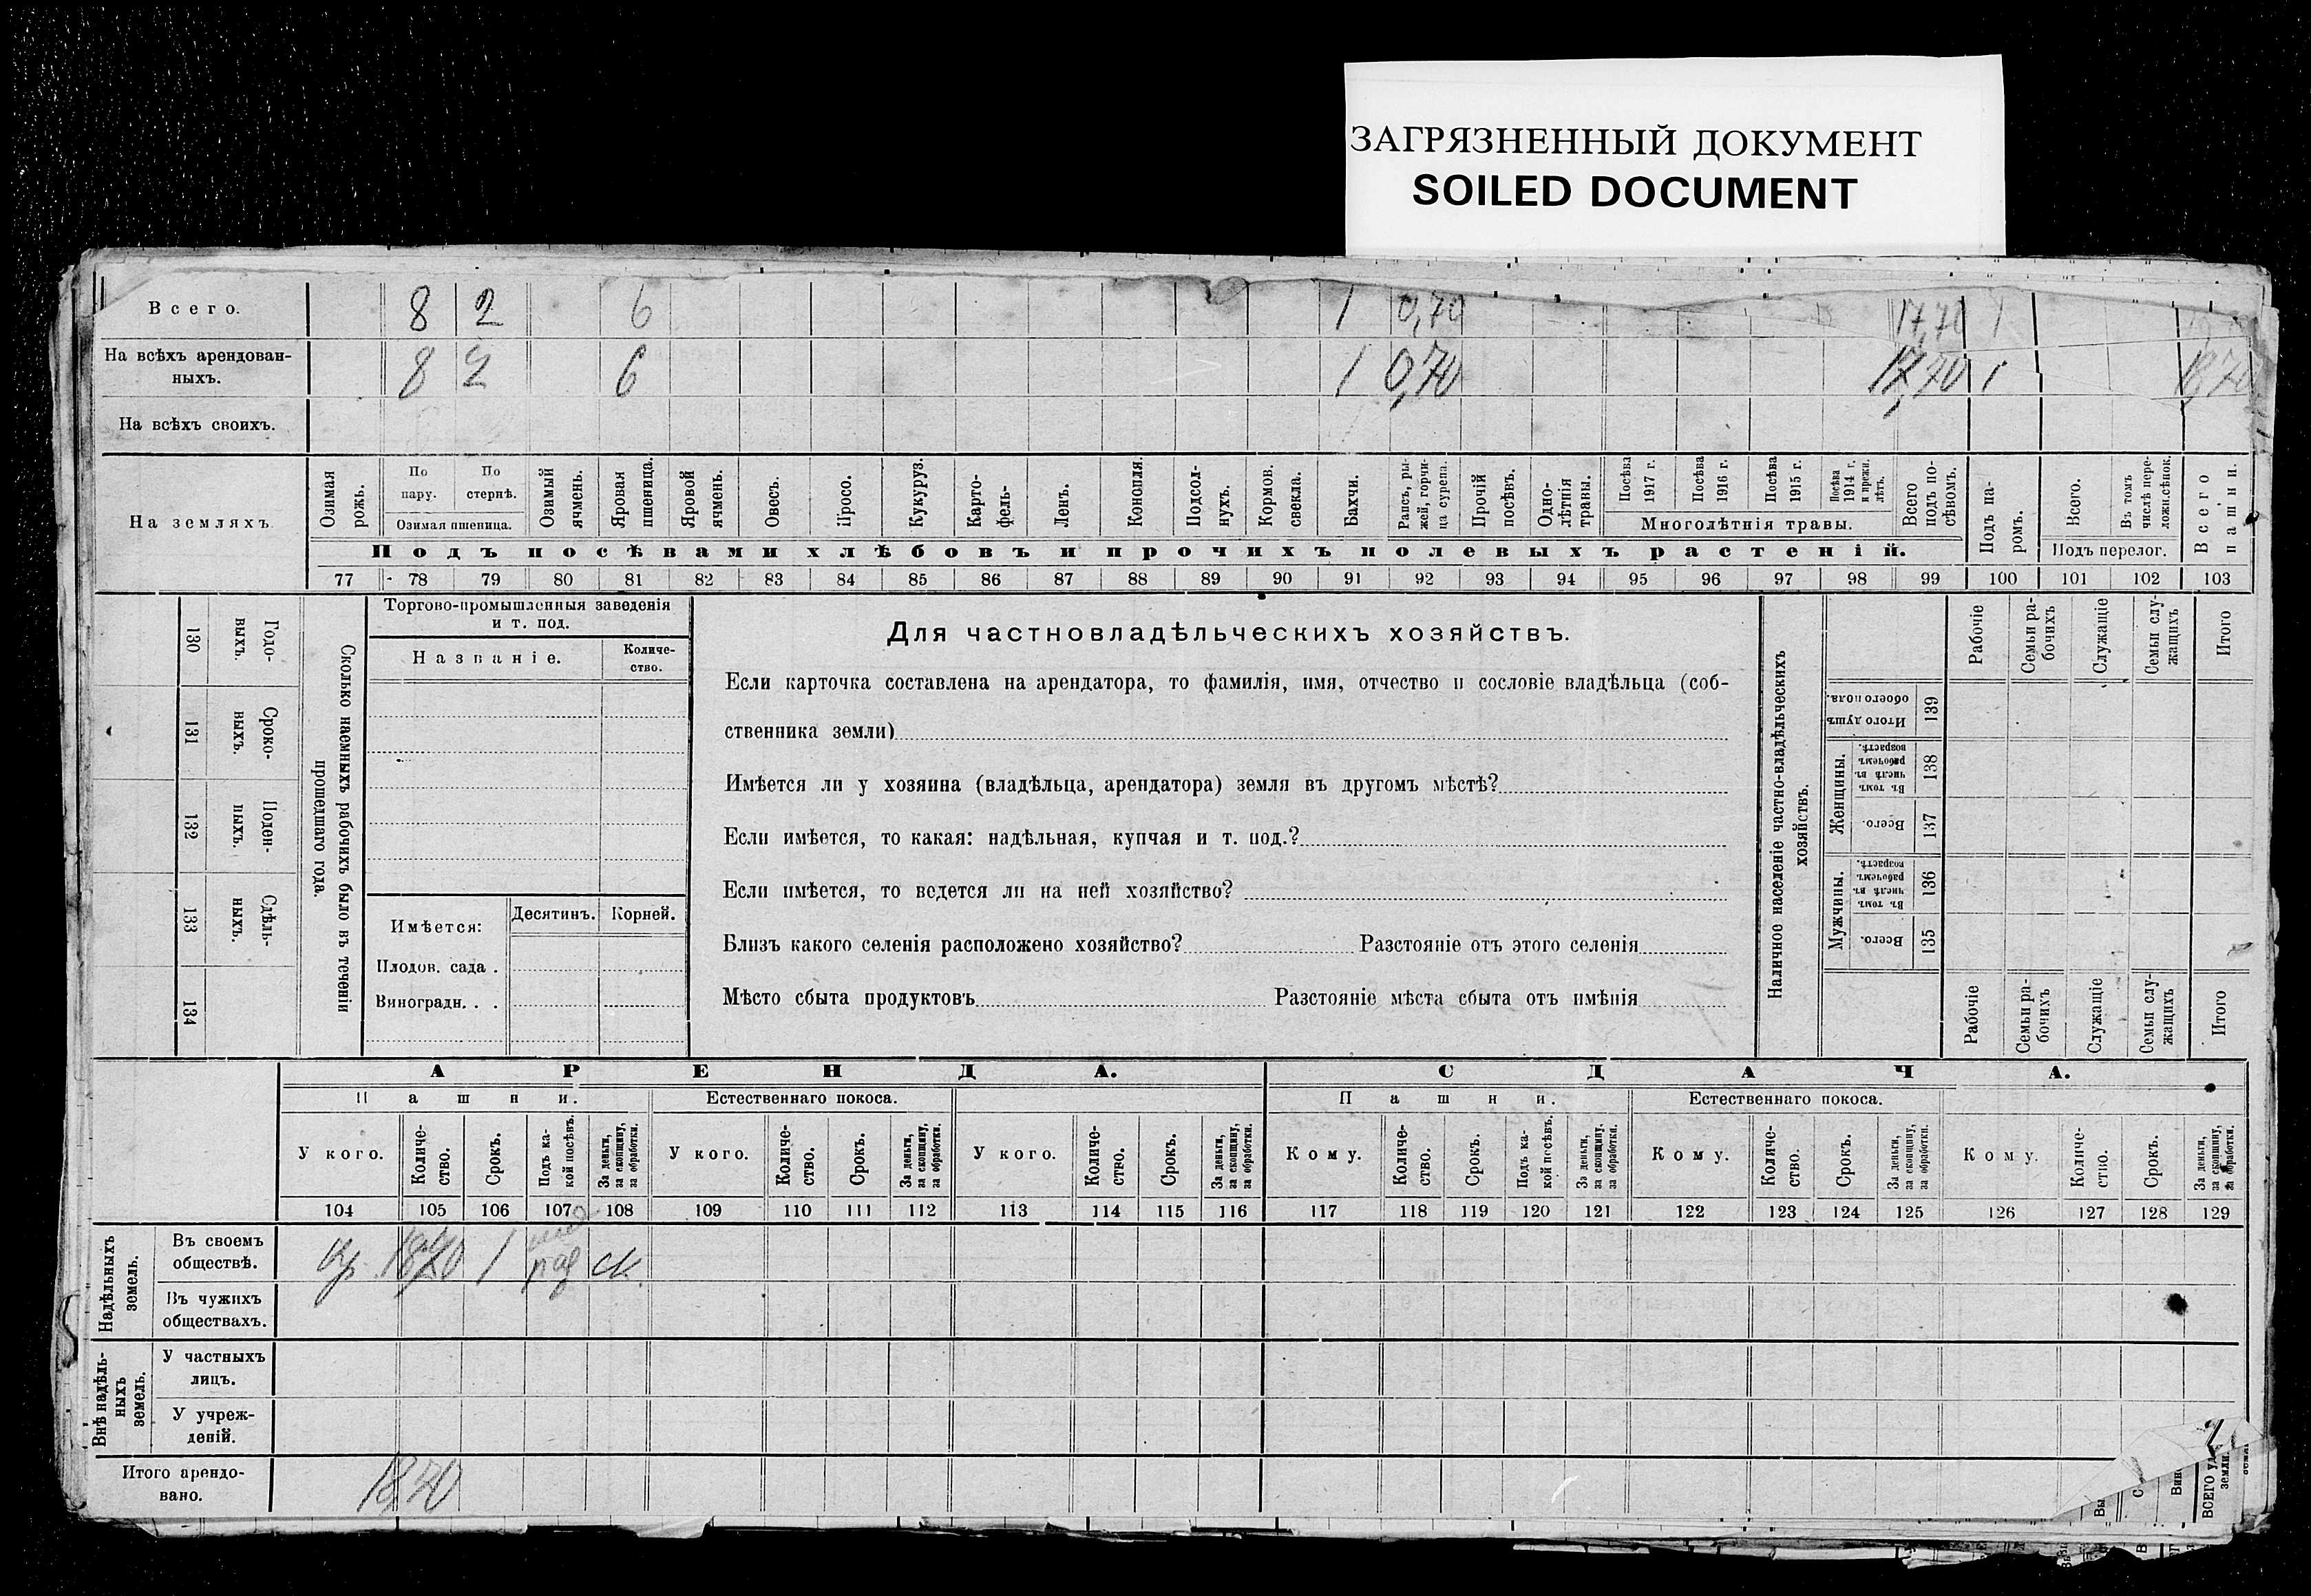 ЗАГРЯЗНЕННЫЙ ДОКУМЕНТ
SOILED DOCUMENT
Всего. 8 2 6 1 0,70 17,70 1
На всѣхъ арендован-
ныхъ. 8 2 6 1 0,70 17,70 1 18,70
На всѣхъ своихъ.
На земляхъ
Озимая рожь.
По пару.
По стернѣ.
Озимая пшеница.
Озимый ячмень.
Яровая пшеница.
Яровой ячмень.
Овесъ.
Просо.
Кукуруз.
Карто-
фель-
Ленъ.
Конопля.
Подсол-
нухъ.
Кормов.
свекла.
Бахчи.
Рапсъ, ры-
жей, горчи-
ца сурепа.
Прочій
посѣвъ.
Одно-
лѣтнія
травы.
Посѣва
1917 г.
Посѣва
1916 г.
Посѣва
1915 г.
Посѣва
1914 г.
и прежн.
лѣтъ.
Многолѣтнія травы.
Всего
подъ по-
сѣвомъ.
Подъ па-
ромъ.
Всего.
Въ томъ
числѣ пере-
ложн.сѣнок.
Подъ перелог.
Всего
пашни.
Подъ посѣвами хлѣбовъ и прочихъ полевыхъ растеній.
77 78 79 80 81 82 83 84 85 86 87 88 89 90 91 92 93 94 95 96 97 98 99 100 101 102 103
130 Годо-
выхъ.
131 Сроко-
выхъ.
132 Поден-
ныхъ.
133 Сдѣль-
ныхъ.
134
Сколько наемныхъ рабочихъ было въ теченіи
прошедшаго года.
Торгово-промышленныя заведенія
и т. под.
Названіе.
Количе-
ство.
Имѣется:
Десятинъ.
Корней.
Плодов. сада .
Виноградн. . .
Для частновладѣльческихъ хозяйствъ.
Если карточка составлена на арендатора, то фамилія, имя, отчество и сословіе владѣльца (соб-
ственника земли)
Имѣется ли у хозяина (владѣльца, арендатора) земля въ другомъ мѣстѣ?
Если имѣется, то какая: надѣльная, купчая и т. под.?
Если имѣется, то ведется ли на ней хозяйство?
Близъ какого селенія расположено хозяйство? Разстояніе отъ этого селенія
Мѣсто сбыта продуктовъ Разстояніе мѣста сбыта отъ имѣнія
Наличное населеніе частно-владѣльческихъ
хозяйствъ.
Рабочіе
Семьи ра-
бочихъ
Служащіе
Семьи слу-
жащихъ
Итого
Итого душъ
обоего пола.
139
Женщины.
Въ томъ
числѣ въ
рабочемъ
возрастѣ.
138
Всего.
137
Мужчины.
Въ томъ
числѣ въ
рабочемъ
возрастѣ.
136
Всего.
135
Рабочіе
Семьи ра-
бочихъ
Служащіе
Семьи слу-
жащихъ
Итого
АРЕНДА.
СДАЧА.
Пашни.
Естественнаго покоса.
Пашни.
Естественнаго покоса.
У кого.
Количе-
ство.
Срокъ.
Подъ ка-
кой посѣвъ.
За деньги,
за скопщину,
за обработки.
У кого.
Количе-
ство.
Срокъ.
За деньги,
за скопщину,
за обработки.
У кого.
Количе-
ство.
Срокъ.
За деньги,
за скопщину,
за обработки.
Кому.
Количе-
ство.
Срокъ.
Подъ ка-
кой посѣвъ.
За деньги,
за скопщину,
за обработки.
Кому.
Количе-
ство.
Срокъ.
За деньги,
за скопщину,
за обработки.
Кому.
Количе-
ство.
Срокъ.
За деньги,
за скопщину,
за обработки.
104 105 106 107 108 109 110 111 112 113 114 115 116 117 118 119 120 121 122 123 124 125 126 127 128 129
Надѣльныхъ
земель.
Въ своемъ
обществѣ. 1 ск.
Въ чужихъ
обществахъ.
Внѣ надѣль-
ныхъ
земель.
У частныхъ
лицъ.
У учреж-
деній.
Итого арендо-
вано. 18,70
ВСЕГО
земли